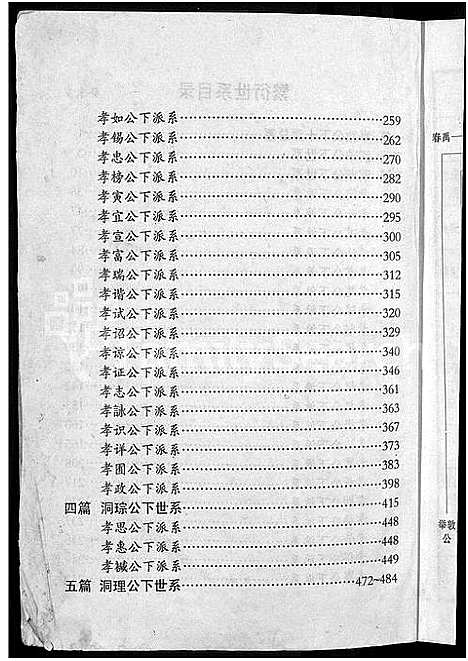 孝如公下派系……259
孝锡公下派系……262
孝忠公下派系……270
孝榜公下派系……282
孝寅公下派系……290
孝宜公下派系……295
孝宣公下派系……300
孝富公下派系……305
孝瑞公下派系……312
孝谐公下派系……315
孝试公下派系……320
孝诏公下派系……329
孝谅公下派系……340
孝证公下派系……346
孝志公下派系……361
孝詠公下派系……363
孝识公下派系……367
孝详公下派系……373
孝囿公下派系……383
孝政公下派系……398
四篇 洞琮公下世系……415
孝思公下派系……448
孝惠公下派系……448
孝槭公下派系……449
五篇 洞理公下世系……472~484